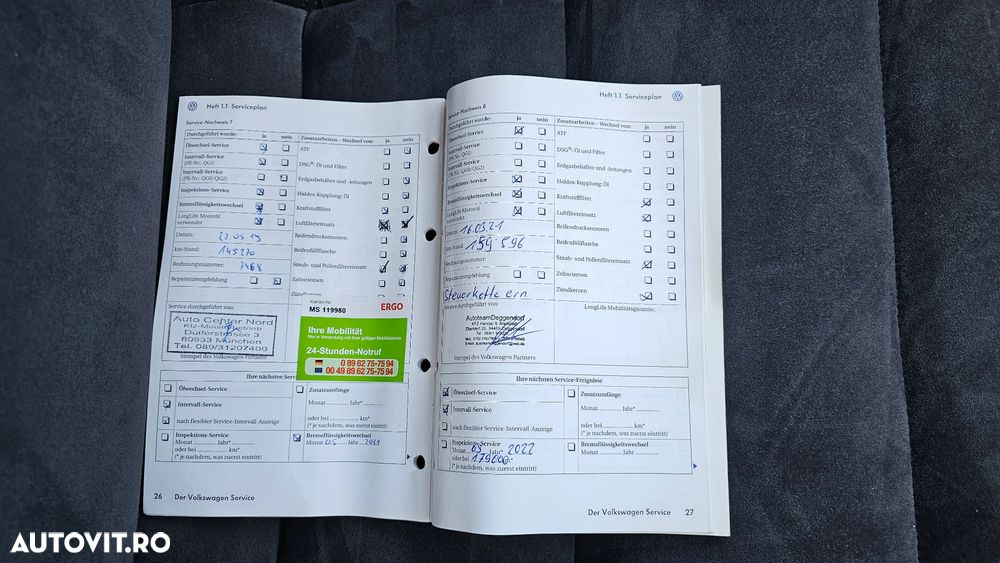 Heft 1.1 Serviceplan
Service-Nachweis 7
Durchgeführt wurde: ja nein
Ölwechsel-Service
Intervall-Service
(PR-Nr.: QG1)
Intervall-Service
(PR-Nr.: QG0/QG2)
Inspektions-Service
Bremsflüssigkeitswechsel
LongLife Motoröl
verwendet
Datum: 22.05.19
km-Stand: 145270
Rechnungsnummer: 7468
Reparaturempfehlung
Zusatzarbeiten – Wechsel von: ja nein
ATF
DSG®: Öl und Filter
Erdgasbehälter und -leitungen
Haldex-Kupplung: Öl
Kraftstofffilter
Luftfiltereinsatz
Reifendrucksensoren
Reifenfüllflasche
Staub- und Pollenfiltereinsatz
Zahnriemen
Zündkerzen
Service durchgeführt von:
Auto Center Nord
Kfz-Meisterbetrieb
Dülferstrasse 3
80933 München
Tel. 089/31207400
Stempel des Volkswagen Partners
Karten-Nr.
MS 119980
ERGO
Ihre Mobilität
Nur in Verbindung mit Ihrer gültigen Mobilitätskarte
24-Stunden-Notruf
0 89 62 75-75 94
00 49 89 62 75-75 94
Ihre nächsten Serv
Ölwechsel-Service
Intervall-Service
nach flexibler Service-Intervall-Anzeige
Inspektions-Service
Monat Jahr*
oder bei km*
(* je nachdem, was zuerst eintritt)
Zusatzumfänge
Monat Jahr*
oder bei km*
(* je nachdem, was zuerst eintritt)
Bremsflüssigkeitswechsel
Monat 05 Jahr 2021
26 Der Volkswagen Service
Heft 1.1 Serviceplan
Service-Nachweis 8
Durchgeführt wurde: ja nein
Ölwechsel-Service
Intervall-Service
(PR-Nr.: QG1)
Intervall-Service
(PR-Nr.: QG0/QG2)
Inspektions-Service
Bremsflüssigkeitswechsel
LongLife Motoröl
verwendet
Datum: 16.03.21
km-Stand: 159 596
Rechnungsnummer:
Reparaturempfehlung
Steuerkette ern.
Service durchgeführt von:
AutoteamDeggendorf
Stempel des Volkswagen Partners
Zusatzarbeiten – Wechsel von: ja nein
ATF
DSG®: Öl und Filter
Erdgasbehälter und -leitungen
Haldex-Kupplung: Öl
Kraftstofffilter
Luftfiltereinsatz
Reifendrucksensoren
Reifenfüllflasche
Staub- und Pollenfiltereinsatz
Zahnriemen
Zündkerzen
LongLife Mobilitätsgarantie:
Ihre nächsten Service-Ereignisse
Ölwechsel-Service
Intervall-Service
nach flexibler Service-Intervall-Anzeige
Inspektions-Service
Monat 03 Jahr* 2022
oder bei 179000 km*
(* je nachdem, was zuerst eintritt)
Zusatzumfänge
Monat Jahr*
oder bei km*
(* je nachdem, was zuerst eintritt)
Bremsflüssigkeitswechsel
Monat Jahr
Der Volkswagen Service 27
AUTOVIT.RO